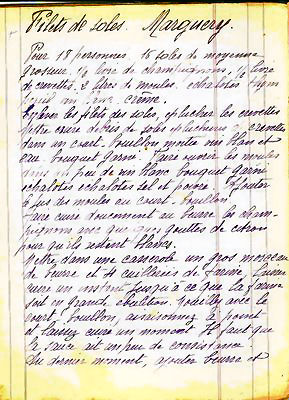 Filets de soles. Marguery.
Pour 18 personnes, 15 soles de moyenne
grosseur, 1/2 livre de champignons, 1/2 livre
de crevettes, 2 litres de moules. échalotes
crème
les filets des soles, éplucher les crevettes
cuire débris de soles épluchures crevettes
dans un court. bouillon moitié vin blanc et
eau. bouquet garni. Faire ouvrir les moules
dans un peu de vin blanc bouquet garni
échalotes sel et poivre. Ajouter
le jus des moules au court. bouillon
Faire cuire doucement au beurre les cham-
pignons avec quelques gouttes de citron
pour qu'ils restent blancs.
Mettre dans une casserole un gros morceau
de beurre et 4 cuillerées de farine, laisser
cuire un instant jusqu'à ce que la farine
soit en grande ébullition. Mouillez avec le
court. bouillon, assaisonnez à point
et laissez cuire un moment. Il faut que
la sauce ait un peu de consistance
Au dernier moment, ajouter beurre et